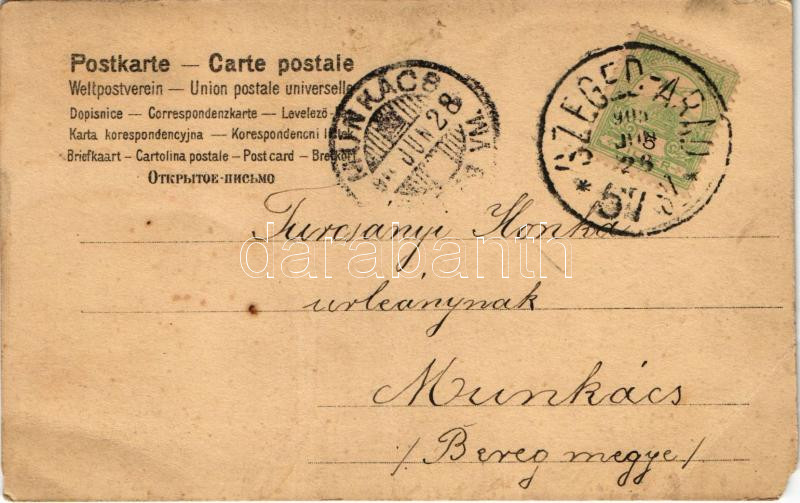 Postkarte — Carte postale
Weltpostverein — Union postale universelle
Dopisnice — Correspondenzkarte — Levelező -
Karta korespondencyjna — Korespondencni l
Briefkaart - Cartolina postale - Post card - Brefkort
Открытое-письмо
MUNKÁCS
JUN 28
SZEGED-ARAD
905
JUN
28
57
Turcsányi Ilonka
urleánynak
Munkács
/Bereg megye/
darabanth